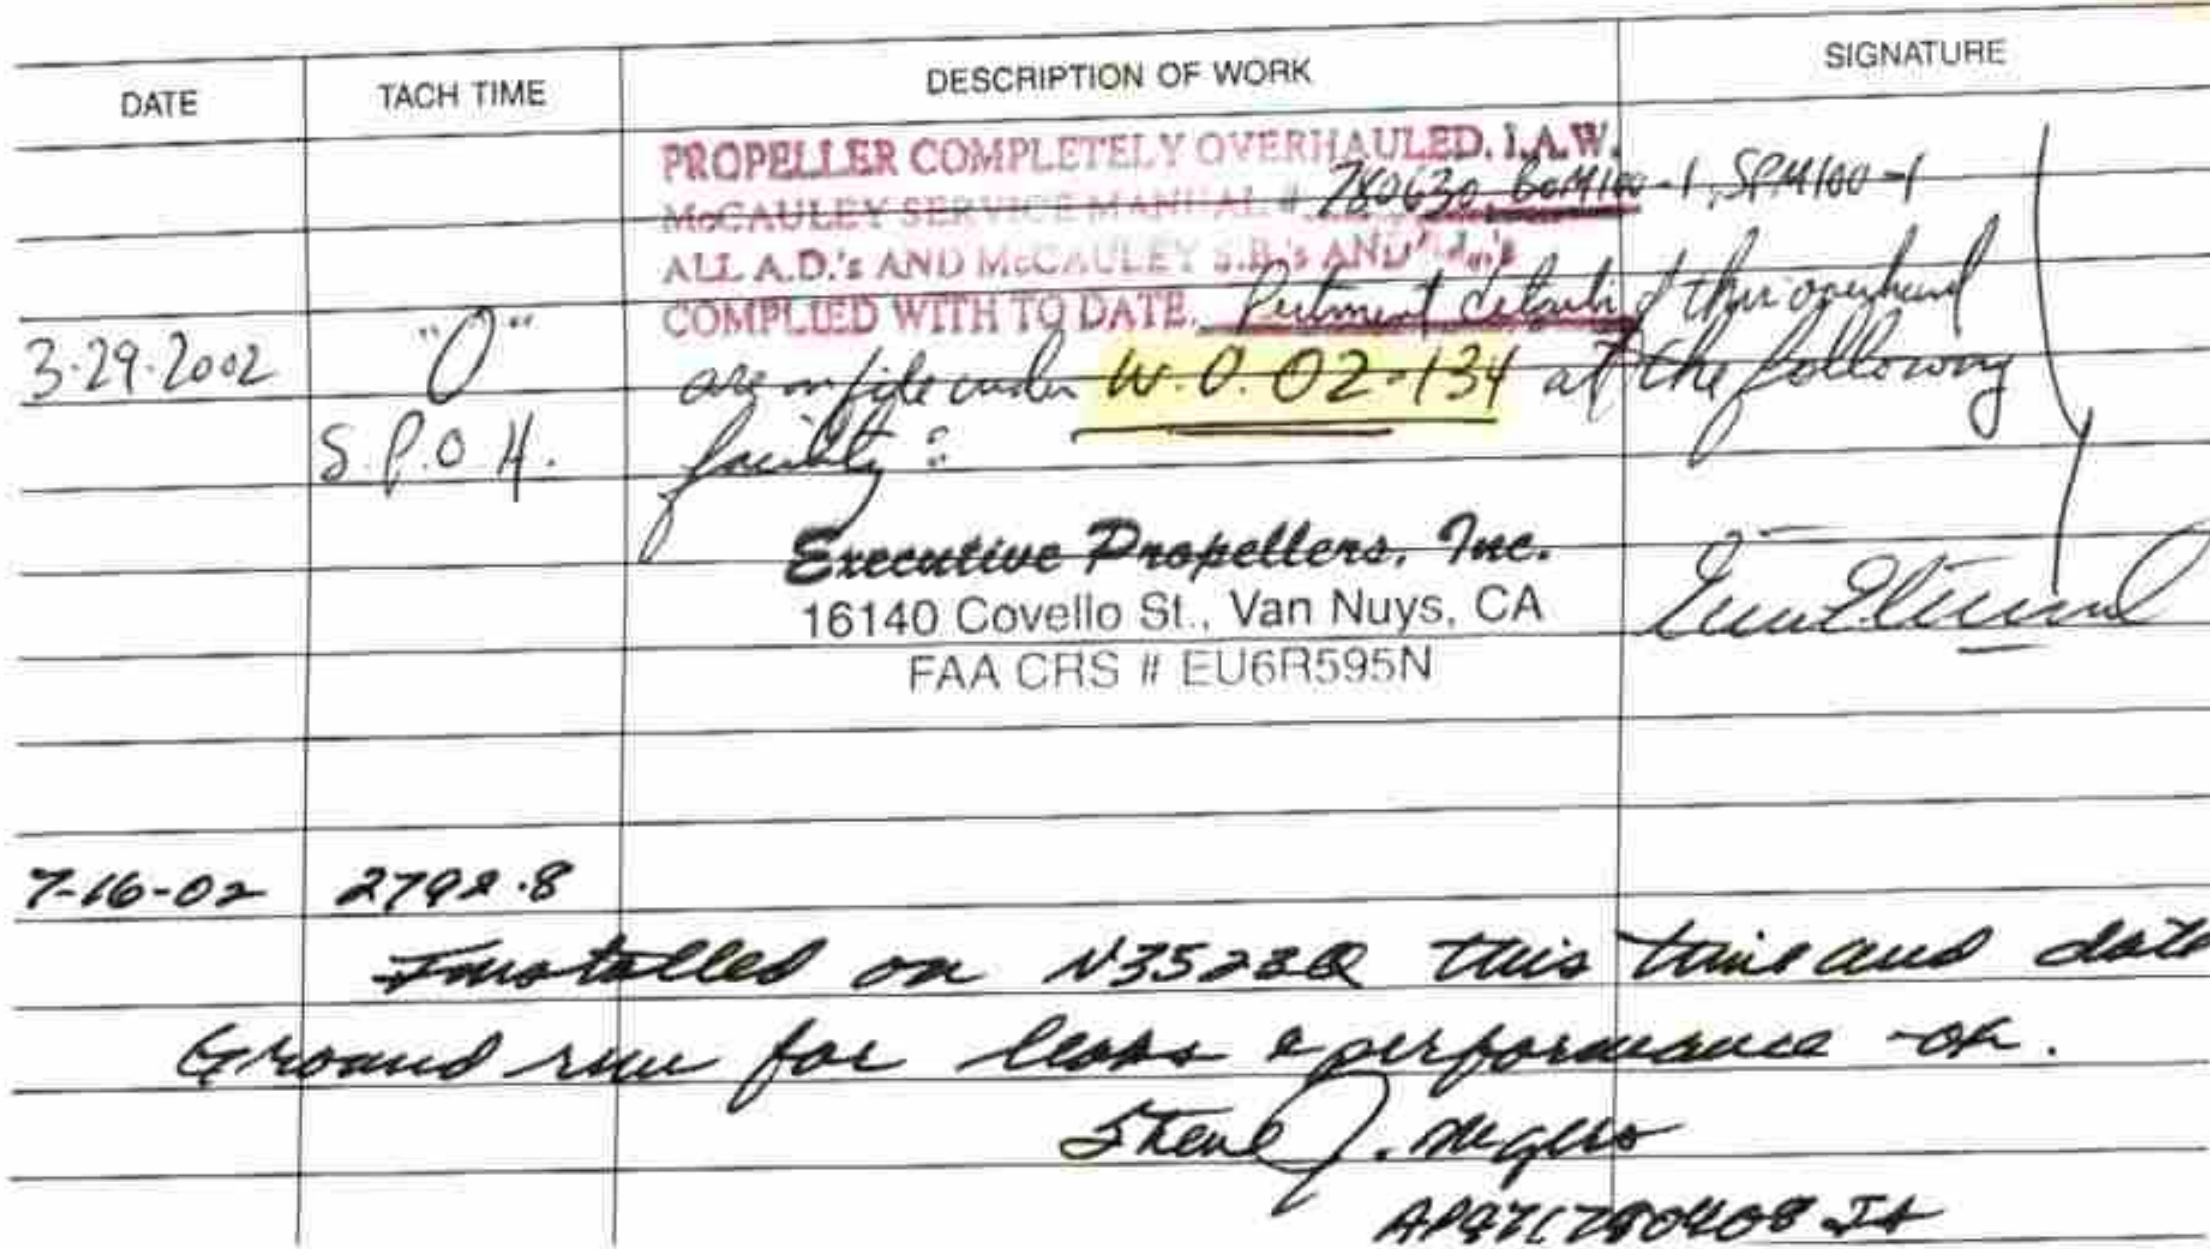 DATE TACH TIME DESCRIPTION OF WORK SIGNATURE
PROPELLER COMPLETELY OVERHAULED. I.A.W.
McCAULEY SERVICE MANUAL # 780630, BOM100-1, SPM100-1
ALL A.D.'s AND McCAULEY S.B.'s AND
COMPLIED WITH TO DATE. Pertinent details of this overhaul
3-29-2002 "0" are on file under W.O. 02-134 at the following
S.P.O.H. facility:
Executive Propellers, Inc.
16140 Covello St., Van Nuys, CA
FAA CRS # EU6R595N
7-16-02 2792.8
Installed on N3523Q this time and date
Ground run for leaks & performance -ok.
Steve J.